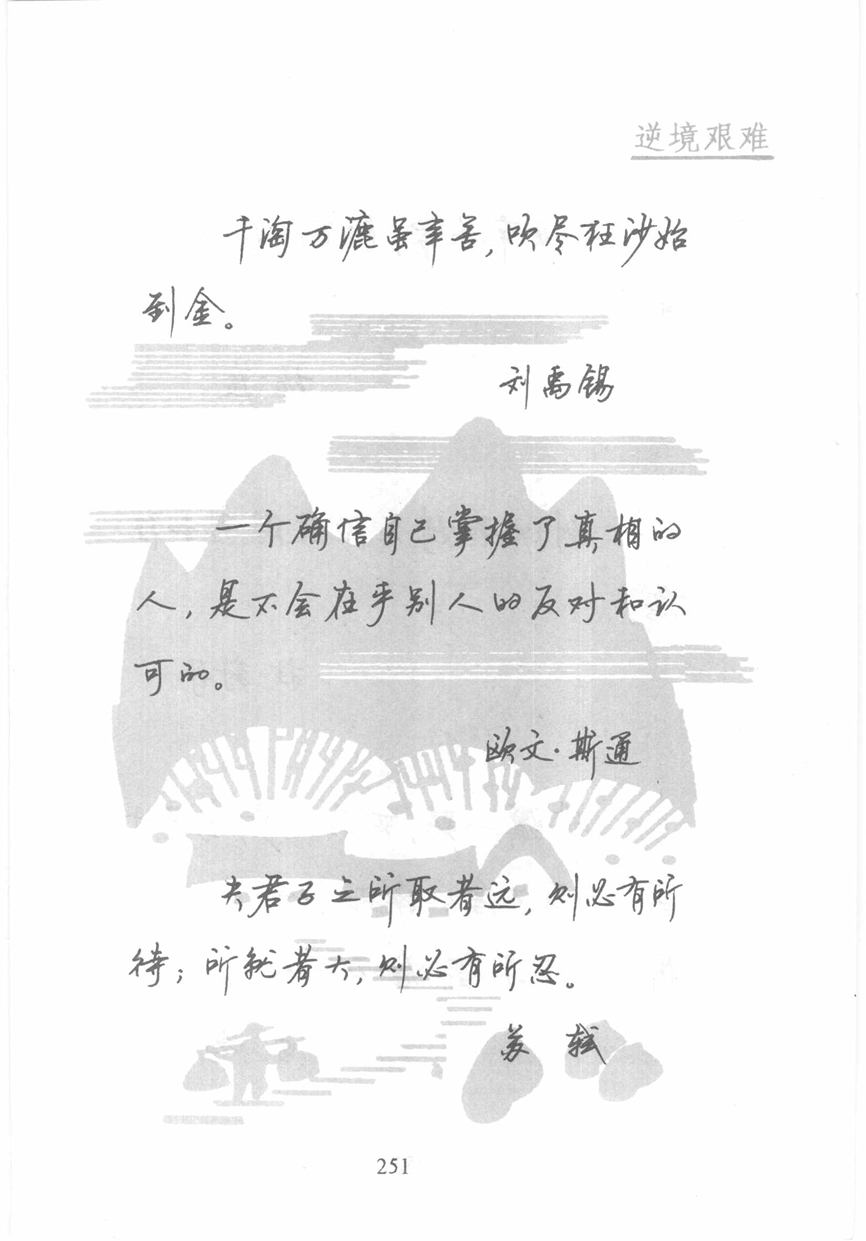 逆境艰难
千淘万漉虽辛苦,吹尽狂沙始
到金。
刘禹锡
一个确信自己掌握了真相的
人,是不会在乎别人的反对和认
可的。
欧文·斯通
夫君子之所取者远,则必有所
待;所就者大,则必有所忍。
苏轼
251